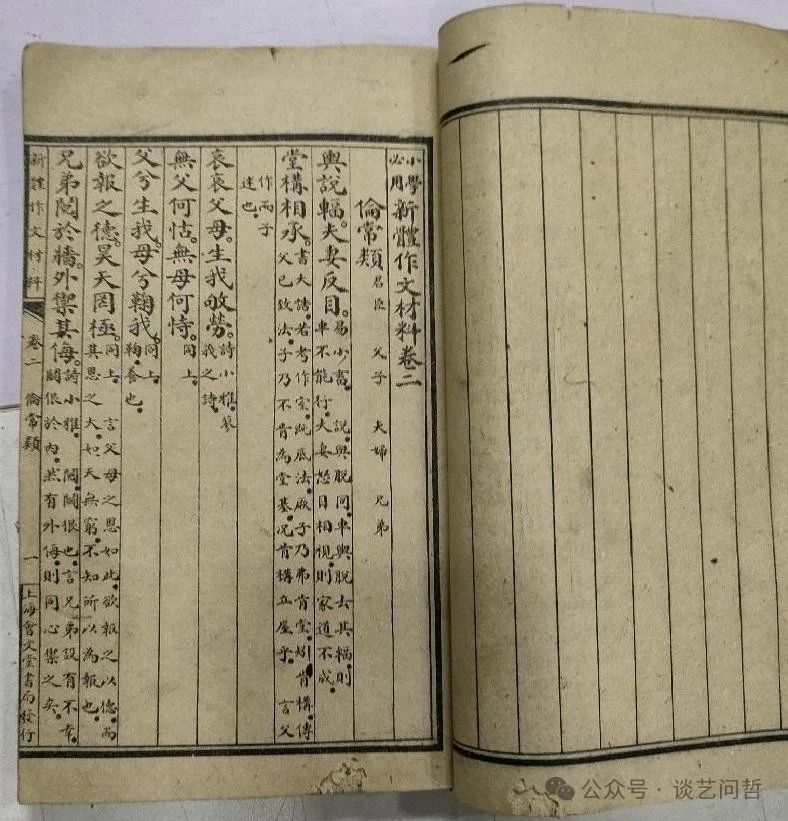 小學必用 新體作文材料卷二
倫常類 君臣 父子 夫婦 兄弟
輿說輻。夫妻反目。易小畜。說與脫同。車輿脫去其輻。則
車不能行。夫妻怒目相視。則家道不成。
堂構相承。書大誥。若考作室。旣底法。厥子乃弗肯堂。矧肯構。傳
父已致法。子乃不肯為堂基。况肯構立屋乎。言父
作而子
述也。
哀哀父母。生我劬勞。詩小雅。蓼
莪之詩。
無父何怙。無母何恃。同上。
父兮生我。母兮鞠我。同上。
鞠養也。
欲報之德。昊天罔極。同上。言父母之恩如此。欲報之以德。而
其恩之大。如天無窮。不知所以為報也。
兄弟鬩於牆。外禦其侮。詩小雅。鬩鬩狠也。言兄弟設有不幸。
鬩狠於內。然有外侮。則同心禦之矣。
新體作文材料 卷二 倫常類 一 上海會文堂書局發行
公众号·谈艺问哲